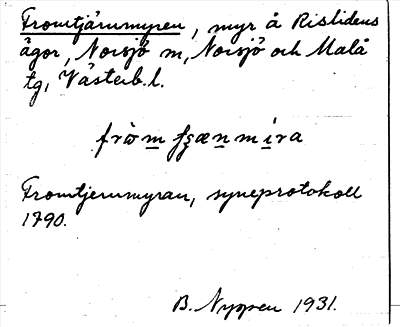 Fromtjärnmyren, myr å Rislidens
ägor, Norsjö sn, Norsjö och Malå
tg, Västerb. l.
fròm fʂæn míra
Fromtjernmyran, syneprotokoll
1790.
B. Nyppen 1931.